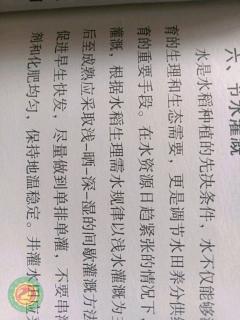 六、节水灌溉
水是水稻种植的先决条件，水不仅能够
育的生理和生态需要，更是调节水田养分供
育的重要手段。在水资源日趋紧张的情况下，
灌溉，根据水稻生理需水规律以浅水灌溉为
后至成熟应采取浅-晒-深-湿的间歇灌溉方法
促进早生快发，尽量做到单排单灌，不要串
剂和化肥均匀，保持地温稳定。井灌水